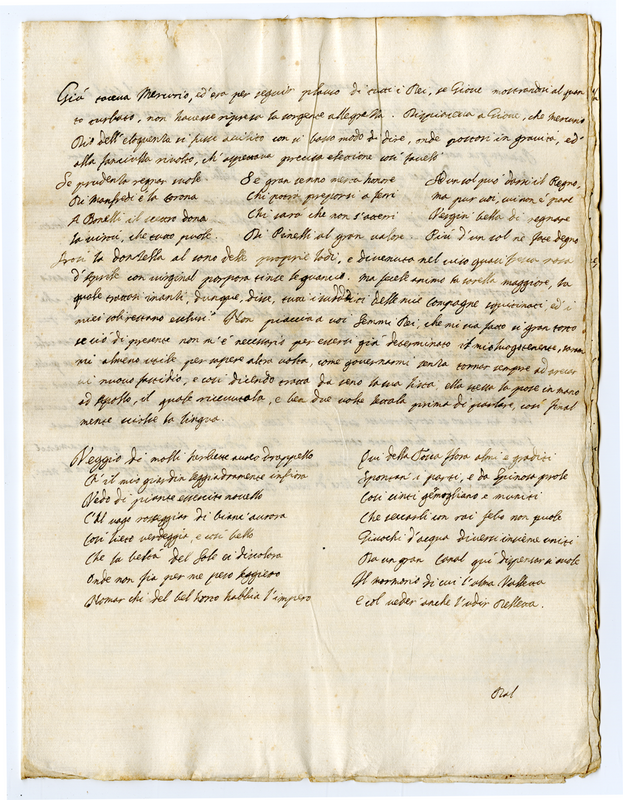 Già taceva Mercurio, ed era per seguir plauso di tutti i Dei, se Giove mostrandosi alquan
to turbato, non havesse ripresa la sorgente allegrezza. Dispiaceva a Giove, che Mercurio
Dio dell'eloquenza si fusse avvilito con si basso modo di dire, onde postosi in gravità, ed
alla fanciulla rivolto, ch'aspettava precisa elezione così favellò
Se prudenza regnar suole
Di Manfredi è la corona
A Bonelli il scettro dona
La virtù, che tutto puote.
Se gran senno merta honore
Chi potrà preporsi a
Chi sarà che non s'atterri
Di Pinelli al gran valore
Se d'un sol può darsi il Regno,
ma pur voi, cui non è pare
Vergini bella di regnare
Più d'un sol ne fate degno
la donzella al sono delle proprie lodi, e divenuta nel viso quasi fresca rosa
d'Aprile con virginal porpora tinse le guancie. Ma fecele animo la sorella maggiore, la
quale trattasi inanti, dunque, disse, tutti i sudditi delle mie Compagne squitinati, ed i
miei soli restano esclusi? Non piaccia a voi Sommi Dei, che mi sia fatto si gran torto
se ciò di presente non m'è necessario per essersi già determinato il mio luogotenente, saram
mi almeno utile per sapere altra volta, come governarmi senza tornar sempre ad arrecar
vi nuovo fastidio, e così dicendo tratta da seno la sua lista, ella stessa la pose in mano
ad Apollo, il quale ricevutala, e ben due volte letta prima di parlare, così final
mente sciolse la lingua.
Veggio di molli herbette aureo drappello
Ch'il mio giardin leggiadramente infiora
Vedo di piante esercito novello
C'Al vago rosseggiar di bianc'aurora
Così lieto verdeggia, e così bello
Che la beltà del Sole si discolora
Onde non fia per me peso leggiero
Nomar chi del bel horto habbia l'impiero
Qui della Tosca flora almi e graditi
Spontani i parti, e da Spinosa prole
Così cinti germogliano e muniti
Che seccarli con rai febo non puole
Giuochi d'acqua diversi insieme uniti
Da un gran Canal qui dispensar si vuole
Al mormorio di cui l'alma s'alleva
E col veder anche l'udir rileva.
Dal